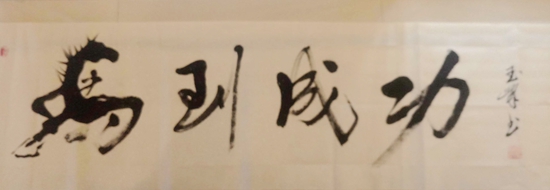 馬到成功
玉祥书